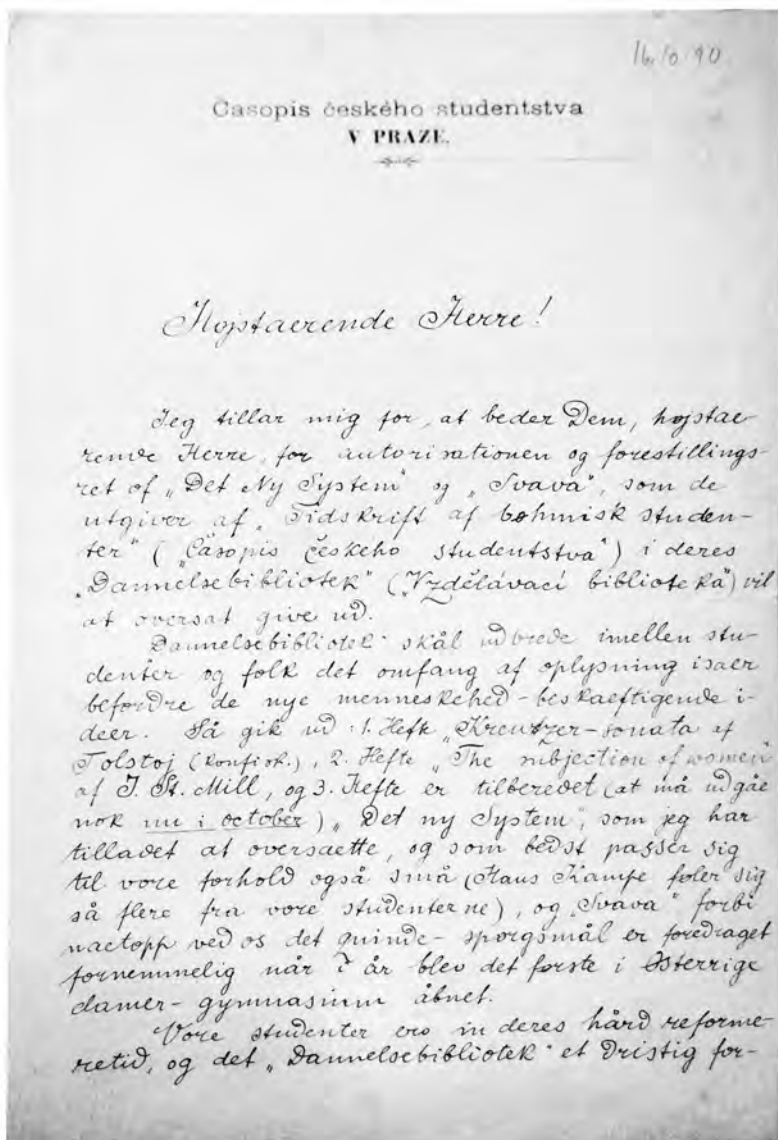 16/10 90
Časopis českého studentstva
V PRAZE.
Hojstaerende Herre!
Jeg tillar mig for, at beder Dem, hojstae-
rende Herre, for autorisationen og forestillings-
ret of „Det Ny System" og „Svava", som de
utgiver af „Tidskrift af bohmisk studen-
ter" („Časopis českeho studentstva") i deres
„Dannelsebibliotek" („Vzdělávací biblioteka") vil
at oversat give ud.
Dannelsebibliotek skål udbrede imellen stu-
denter og folk det omfang af oplysning isaer
befordre de nye menneskehed-beskaeftigende i-
deer. Så gik ud: 1. Heft „Kreutzer-sonata af
Tolstoj (konfisk.), 2. Hefte „The subjection of women"
af J. St. Mill, og 3. Hefte er tilberedet (at må udgåe
nok nu i october) „Det ny System", som jeg har
tilladet at oversaette, og som bedst passer sig
til vore forhold også små (Hans Kampe foler sig
så flere fra vore studenterne), og „Svava" forbi
ved os det quinde-sporgsmål er foredraget
fornemmelig når i år blev det forste i Osterrige
damer-gymnasium åbnet.
Vore studenter ero in deres hård reforme-
retid, og det „Dannelsebibliotek" et Dristig for-